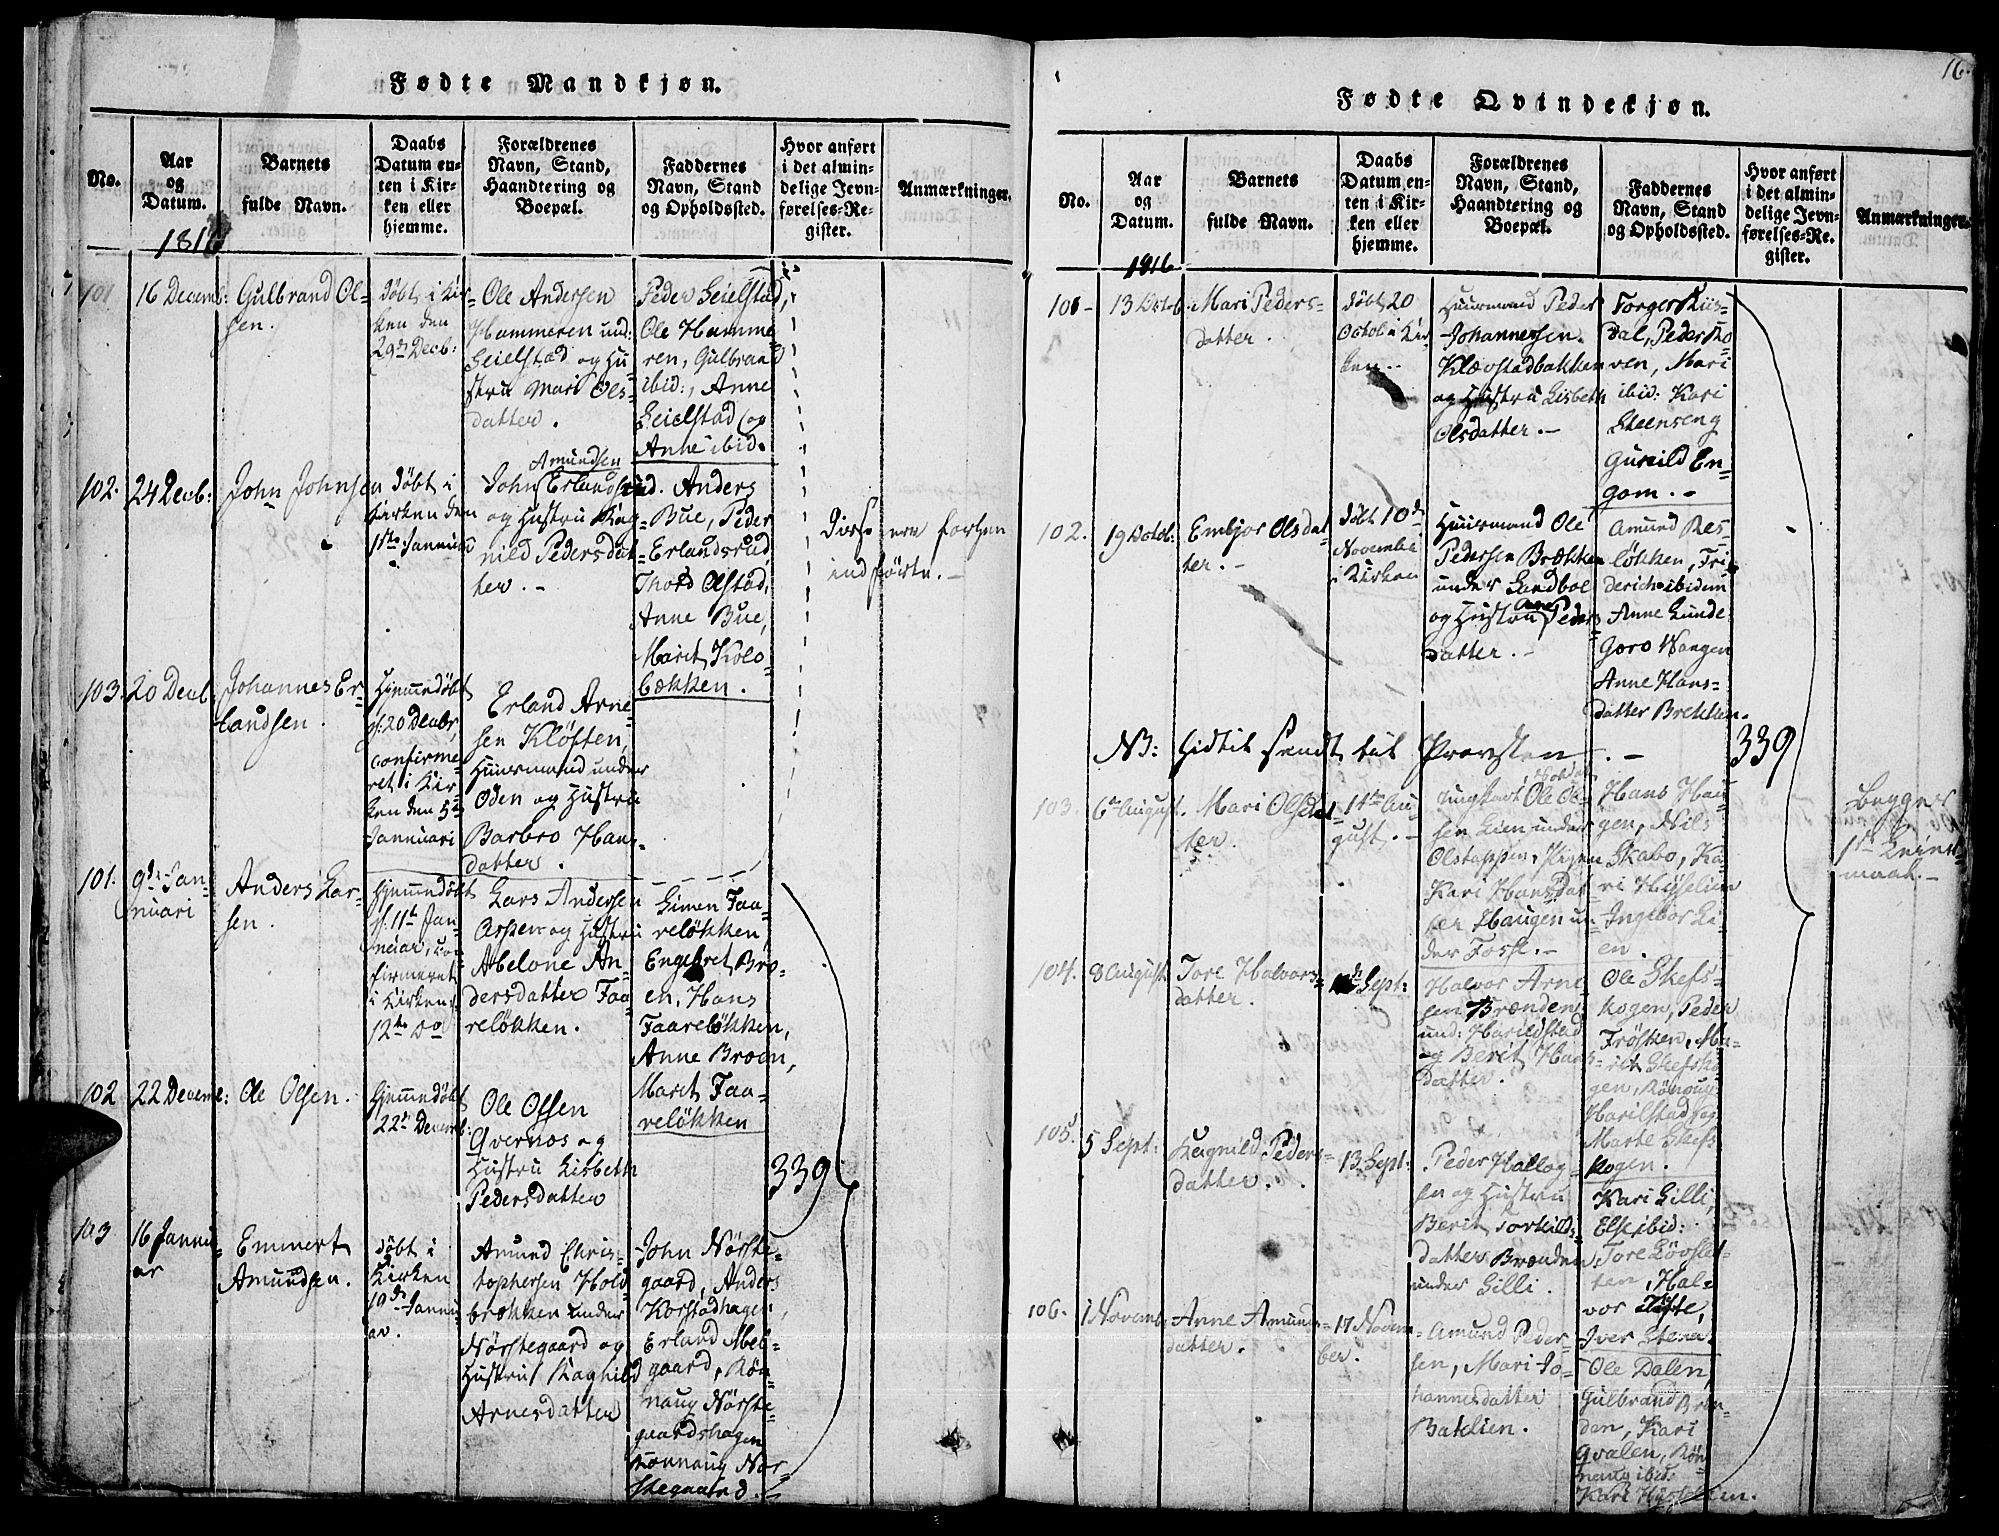 Fødte Mandkjøn.
No.
Aar
og
Datum.
Barnets
fulde Navn.
Daabs
Datum en-
ten i Kir-
ken eller
hjemme.
Forældrenes
Navn, Stand,
Haandtering og
Boepæl.
Faddernes
Navn, Stand
og Opholdssted.
Hvor anført
i det almin-
delige Jevn-
førelses-Re-
gister.
Anmærkninger.
1816
101
16 Decemb:
Gulbrand Ol-
sen.
Døbt i Kir-
ken den
29de Decb:
Ole Andersen
Hammeren und:
Seielstad og Hu-
stru Mari Ols-
datter.
Peder Seielstad,
Ole Hamme-
ren, Gulbrand
ibid:, Anne
Seielstad og
Anne ibid.
102.
24 Decb:
John Johnsen
Døbt i
Kirken den
1ste Januari
Amundsen
John Erlandsrud.
og Hustru Rag-
nild Pedersdat-
ter. -
Anders
Bue, Peder
Erlandsrud,
Thord Olstad,
Anne Bue,
Marit Kolo-
bækken.
Disse ere forhen
indførte. -
103.
20 Decb.
Johannes Er-
landsen.
Hjemmedøbt
d. 20 Decbr,
confirme-
ret i Kir-
ken den 5te
Januari
Erland Arne-
sen Kløften,
Huusmand under
Oden og Hustru
Barbro Hans-
datter.
101.
9de Jan-
nuari
Anders Lar-
sen.
Hjemmedøbt
d. 11te Jan-
nuar, con-
firmeret
i Kirken
12te do
Lars Andersen
Aspen og Hustru
Abelone An-
dersdatter Faa-
reløkken.
Simen Faa-
reløkken,
Engebret Bro-
en, Hans
Faareløkken,
Anne Broen,
Marit Faa-
reløkken
102
22 Decemb:
Ole Olsen.
Hjemmedøbt
22de Decemb:
Ole Olsen
Qvernos og
Hustru Lisbeth
Pedersdatter
339
103
16 Jannu-
ar
Emmert
Amundsen.
Døbt i
Kirken
19de Jannu-
ar.
Amund Chris-
tophersen Hold-
brækken under
Nørstegaard og
Hustru Ragnild
Arnesdatter
John Nørste-
gaard, Anders
Korstadhagen,
Erland Mel-
gaard, Røn-
naug Nørste-
gaardshagen
Rønnaug Nør-
stegaard.
16.
Fødte Qvindekjøn.
No.
Aar
og
Datum.
Barnets
fulde Navn.
Daabs
Datum en-
ten i Kir-
ken eller
hjemme.
Forældrenes
Navn, Stand,
Haandtering og
Boepæl.
Faddernes
Navn, Stand
og Opholdssted.
Hvor anført
i det almin-
delige Jevn-
førelses-Re-
gister.
Anmærkninger.
1816
101-
13 Octob.
Mari Peders-
datter.
Døbt 20
Octob i Kir-
ken. -
Huusmand Peder
Johannessen
Klævstadbakken
og Hustru Lisbeth
Olsdatter. -
Torger Riis-
dal, Peder Ro-
ven, Mari
ibid: Kari
Steenseng
Gunild En-
gom. -
102.
19 Octob:
Embjor Olsdat-
ter. -
Døbt 10de
November
i Kirken
Huusmand Ole
Pedersen Brækken
under Sandboe
og Hustru Anne Peders-
datter. -
Amund Res-
løkken, Fri-
derich ibidem
Anne Lunde
Goro Wangen
Anne Hans-
datter Brekken.
NB: Hidtil sendt til Provsten. -
339
103.
6te August.
Mari Olsdat-
ter.
11te Au-
gust. -
Soldat
Ungkarl Ole Ol-
sen Lien under
Olstappen, Pigen
Kari Hansdat-
ter Haugen un-
der Fosse. -
Hans Hau-
gen, Nils
Skabo, Ka-
ri Hysselien
Ingebor Li-
en.
Begges
1ste Leier-
maal. -
104.
8 August.
Tore Halvors-
datter.
Sept:
Halvor Arne-
sen Brænden
und: Harildstad
og Berit Hans-
datter.
Ole Skefs-
kogen, Peder
Frøsken, Ma-
rit Skefsko-
gen, Rønnaug
Harilstad og
Marte Skefs-
kogen.
105.
5 Sept:
Ragnild Peders-
datter.
13 Sept:
Peder Hallog-
sen og Hustru
Berit Torkilds-
datter Brænden
under Silli.
Kari Silli,
Else ibid:
Tore Løvslet-
ten, Hal-
vor Tofte,
Iver Steen
106.
1 Novemb:
Anne Amunds-
datter.
17 Novem-
ber.
Amund Peder-
sen, Mari Jo-
hannesdatter
Baklien.
Ole Dalen,
Gulbrand Bræn-
den, Kari
Qvalen, Røn-
naug ibid:
Kari Hysselien.